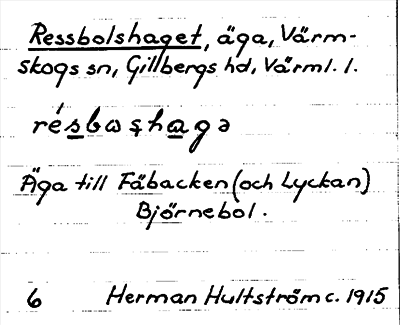 Ressbolshaget, äga, Värm-
skogs sn, Gillbergs hd, Värml. l.
résbωşhagə
Äga till Fäbacken (och Lyckan)
Björnebol.
6 Herman Hultström c. 1915